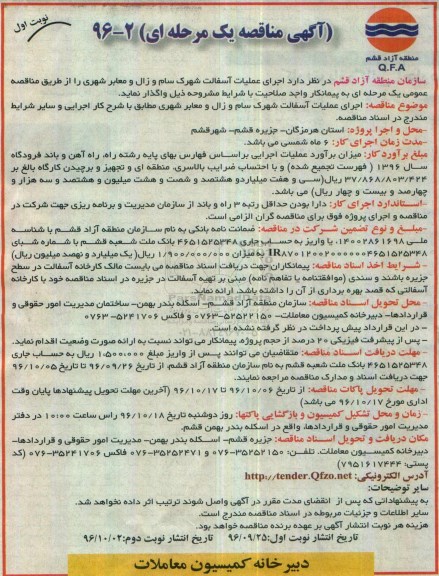 نوبت اول
(آگهی مناقصه یک مرحله ای) ۲-۹۶
منطقه آزاد قشم
Q.F.A
سازمان منطقه آزاد قشم در نظر دارد اجرای عملیات آسفالت شهرک سام و زال و معابر شهری را از طریق مناقصه
عمومی یک مرحله ای به پیمانکار واجد صلاحیت با شرایط مشروحه ذیل واگذار نماید.
موضوع مناقصه: اجرای عملیات آسفالت شهرک سام و زال و معابر شهری مطابق با شرح کار اجرایی و سایر شرایط
مندرج در اسناد مناقصه.
-محل و اجرا پروژه: استان هرمزگان- جزیره قشم- شهرقشم
-مدت زمان اجرای کار: ۶ ماه شمسی می باشد.
مبلغ برآورد کار: میزان برآورد عملیات اجرایی براساس فهارس بهای پایه رشته راه، راه آهن و باند فرودگاه
سال ۱۳۹۶ ( فهرست تجمیع شده) و با احتساب ضرایب بالاسری، منطقه ای و تجهیز و برچیدن کارگاه بالغ بر
۳۷/۸۶۸/۸۰۳/۴۲۴ ریال(سی و هفت میلیاردو هشتصد و شصت و هشت میلیون و هشتصد و سه هزار و
چهارصد و بیست و چهار ریال) می باشد.
-استاندارد اجرای کار: دارا بودن حداقل رتبه ۳ راه و باند از سازمان مدیریت و برنامه ریزی جهت شرکت در
مناقصه و اجرای پروژه فوق برای مناقصه گران الزامی است.
-مبلغ و نوع تضمین شرکت در مناقصه: ضمانت نامه بانکی به نام سازمان منطقه آزاد قشم با شناسه
ملی ۱۴۰۰۲۸۶۱۶۹۸، یا واریز به حساب جاری ۴۶۵۱۵۲۵۳۴۸ بانک ملت شعبه قشم با شماره شبای
IR۸۷۰۱۲۰۰۲۰۰۰۰۰۰۴۶۵۱۵۲۵۳۴۸ به میزان ۱/۹۰۰/۰۰۰/۰۰۰ ریال(یک میلیارد و نهصد میلیون ریال)
- شرایط اخذ اسناد مناقصه: پیمانکاران جهت دریافت اسناد مناقصه می بایست مالک کارخانه آسفالت در سطح
جزیره باشند و سندی (موافقتنامه یا تفاهم نامه) مبنی بر تهیه آسفالت در جزیره در اسناد مناقصه خود با کارخانه
آسفالتی که قصد بهره برداری از آن را داشته باشد، ارائه نماید.
- محل تحویل اسناد مناقصه: سازمان منطقه آزاد قشم- اسکله بندر بهمن- ساختمان مدیریت امور حقوقی و
قراردادها- دبیرخانه کمیسیون معاملات- ۳۵۲۵۲۱۵۰-۰۷۶ و فاکس ۵۲۴۱۷۰۶-۰۷۶۳
- در این قرارداد پیش پرداخت در نظر گرفته نشده است.
- پس از پیشرفت فیزیکی ۲۰ درصد از حجم پروژه، پیمانکار می تواند نسبت به ارائه صورت وضعیت اقدام نماید.
- مهلت دریافت اسناد مناقصه: متقاضیان می توانند پس از واریز مبلغ ۱،۵۰۰،۰۰۰ ریال به حساب جاری
۴۶۵۱۵۲۵۳۴۸ بانک ملت شعبه قشم به نام سازمان منطقه آزاد قشم، از تاریخ ۹۶/۰۹/۲۶ تا تاریخ ۹۶/۱۰/۰۵
جهت دریافت اسناد و مدارک مناقصه مراجعه نمایند.
- مهلت تحویل پاکات مناقصه: از تاریخ ۹۶/۱۰/۰۶ تا ۹۶/۱۰/۱۷ (آخرین مهلت تحویل پیشنهادها پایان وقت
اداری مورخ ۹۶/۱۰/۱۷ می باشد)
- زمان و محل تشکیل کمیسیون و بازگشایی پاکتها: روز دوشنبه تاریخ ۹۶/۱۰/۱۸ راس ساعت ۱۰:۰۰ در دفتر
مدیریت امور حقوقی و قراردادها، واقع در اسکله بندر بهمن قشم.
مکان دریافت و تحویل اسناد مناقصه: جزیره قشم- اسکله بندر بهمن- مدیریت امور حقوقی و قراردادها-
دبیرخانه کمیسیون معاملات. تلفن: ۳۵۲۵۲۱۵۰-۰۷۶ و ۳۵۲۵۲۴۷۱-۰۷۶ فاکس ۳۵۲۴۱۷۰۶-۰۷۶ (کد
پستی: ۷۹۵۱۶۱۷۴۴۴)
آدرس الکترونیکی: http://tender.Qfzo.net
سایر توضیحات:
به پیشنهاداتی که پس از انقضای مدت مقرر در آگهی واصل شوند ترتیب اثر داده نخواهد شد.
سایر اطلاعات و جزئیات مربوطه در اسناد مناقصه مندرج است.
هزینه هر نوبت انتشار آگهی بر عهده برنده مناقصه خواهد بود.
تاریخ انتشار نوبت اول: ۹۶/۰۹/۲۵ تاریخ انتشار نوبت دوم: ۹۶/۱۰/۰۲
دبیرخانه کمیسیون معاملات